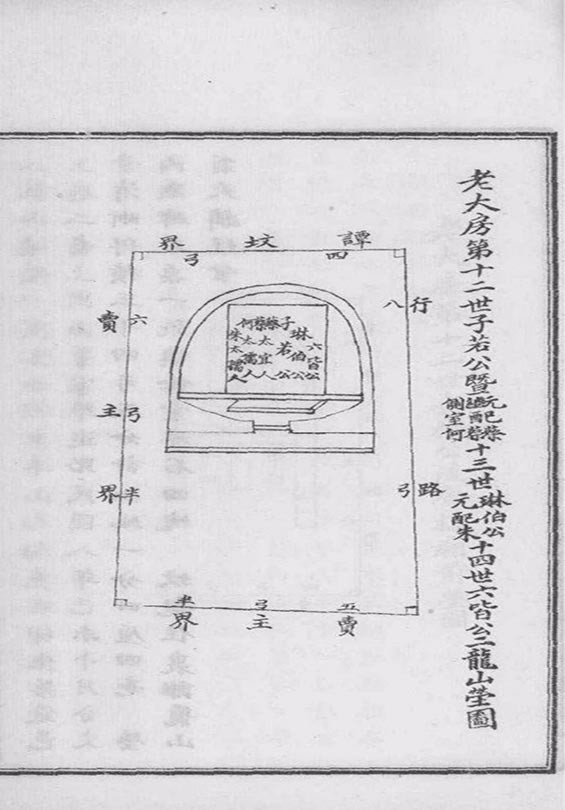 老大房第十二世子若公暨元配蔡繼配蔡側室何十三世琳伯公元配朱十四世六皆公二龍山塋圖
譚坟界
四弓
行路
八弓
六皆公
琳伯公
子若公
蔡蔡太宜人
何太孺人
朱太孺人
賣主界
六弓半
賣主界
五弓半